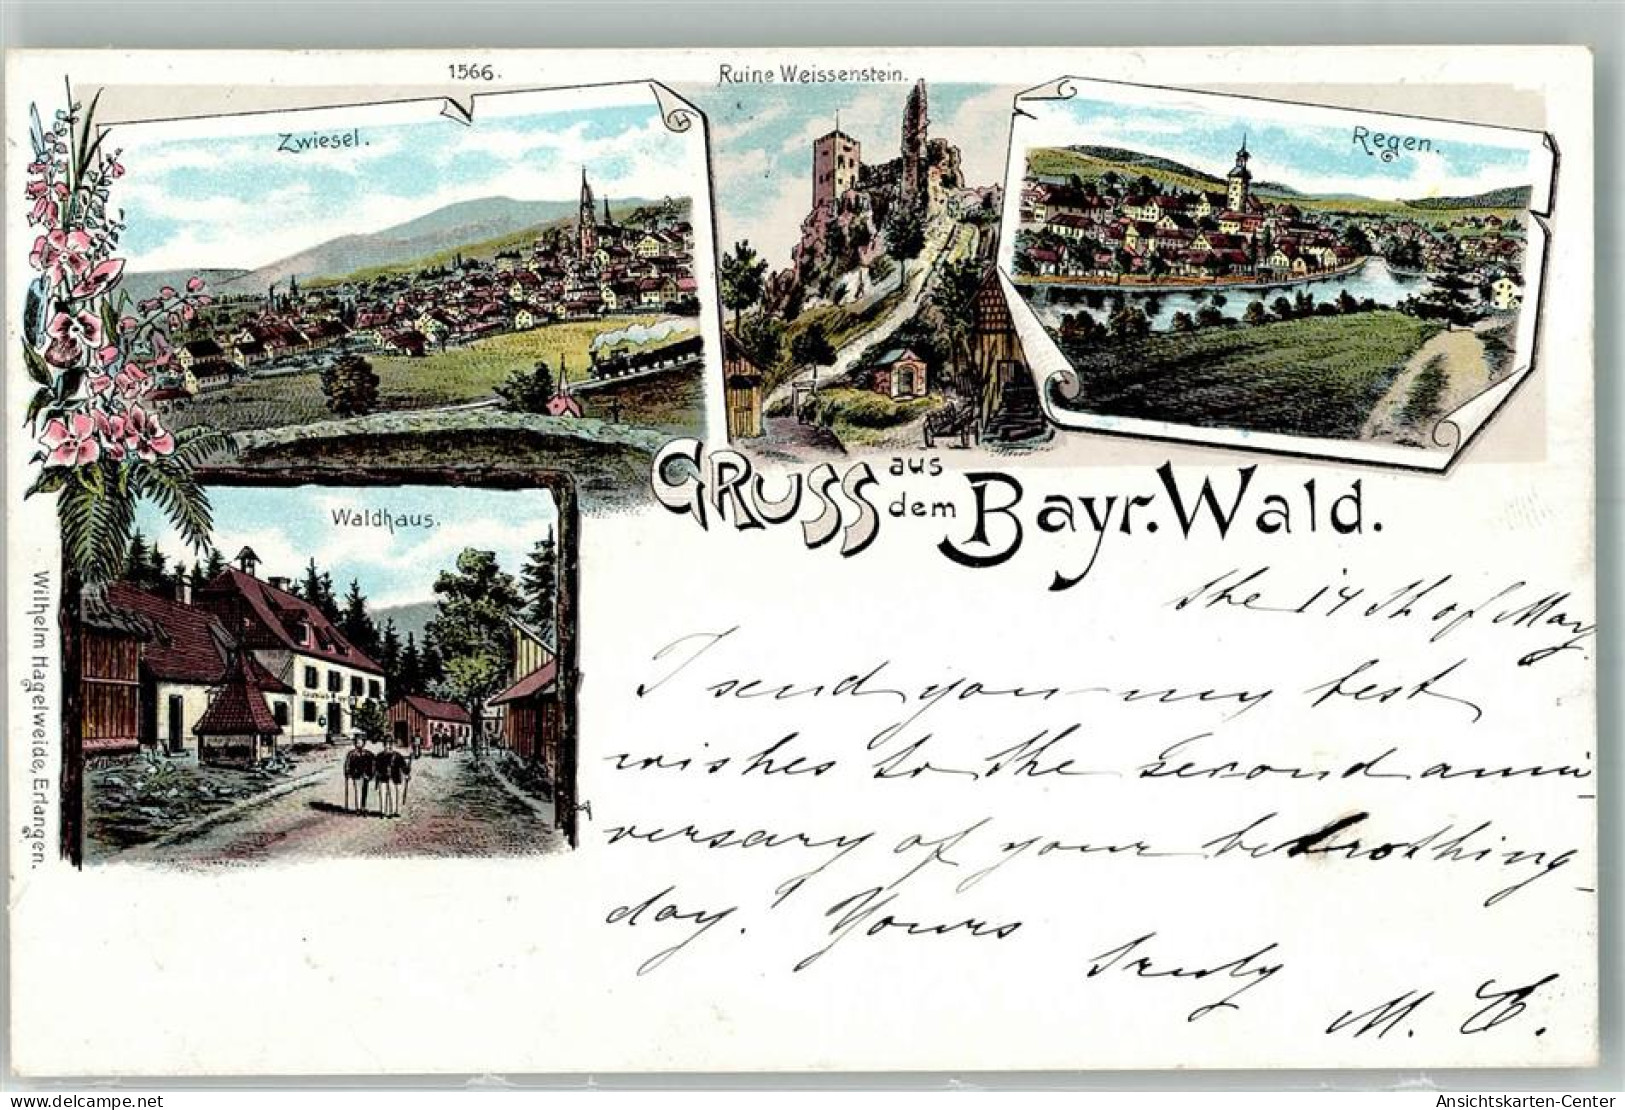 1566.
Ruine Weissenstein.
Zwiesel.
Regen.
GRUSS aus dem Bayr. Wald.
Waldhaus.
Wilhelm Hagelweide, Erlangen.
the 14th of May.
I send you my best
wishes to the second anni-
versary of your betrothing-
day! Yours
truly
M. E.
akpool.de
Ansichtskarten-Center